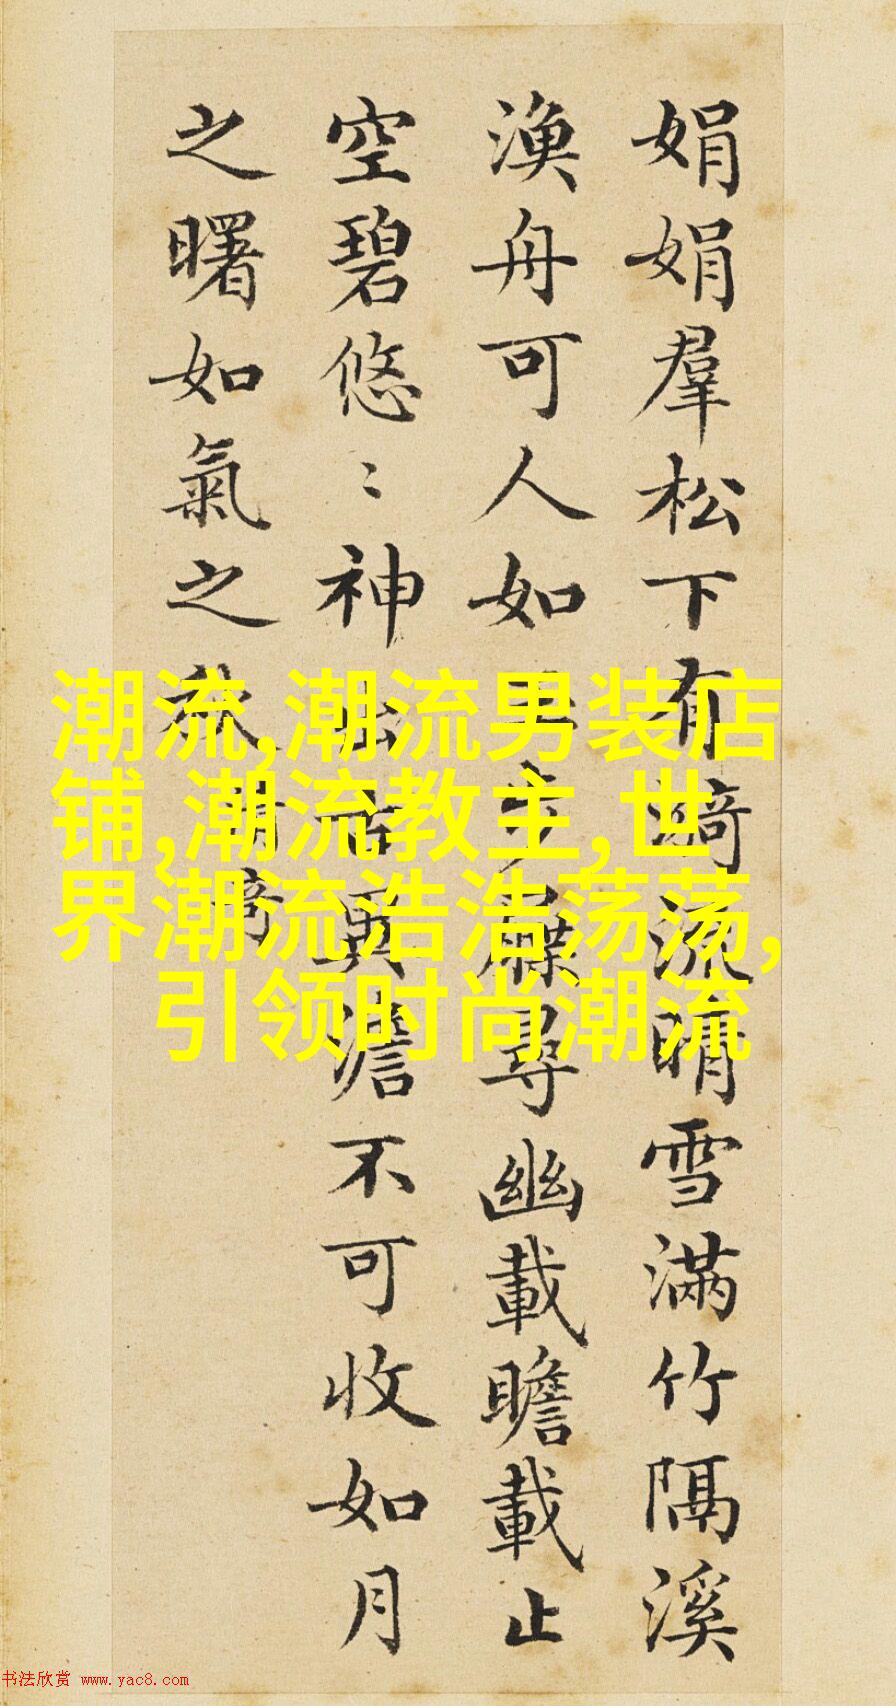 娟娟羣松下有漪流晴雪滿竹隔溪
漁舟可人如步屧尋幽載瞻載止
空碧悠〻神出古異澹不可收如月
之曙如氣之秋
清奇
潮流,潮流男装店
铺,潮流教主,世
界潮流浩浩荡荡,
引领时尚潮流
书法欣赏 www.yac8.com